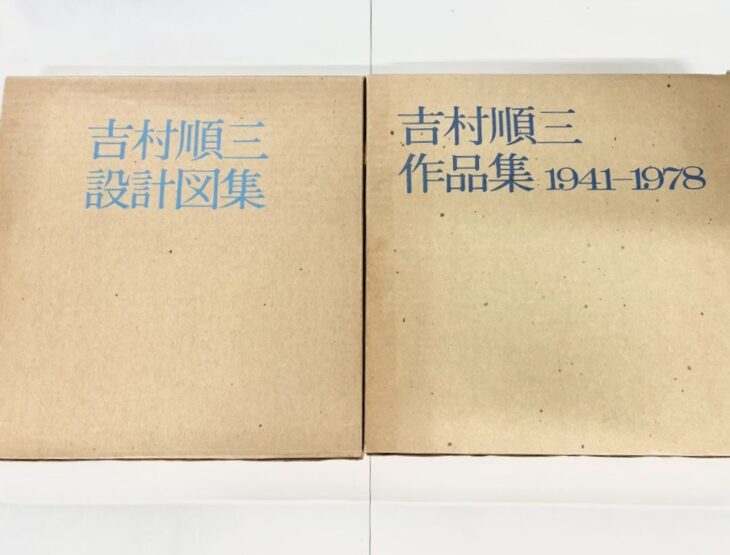 吉村順三
設計図集
吉村順三
作品集 1941–1978